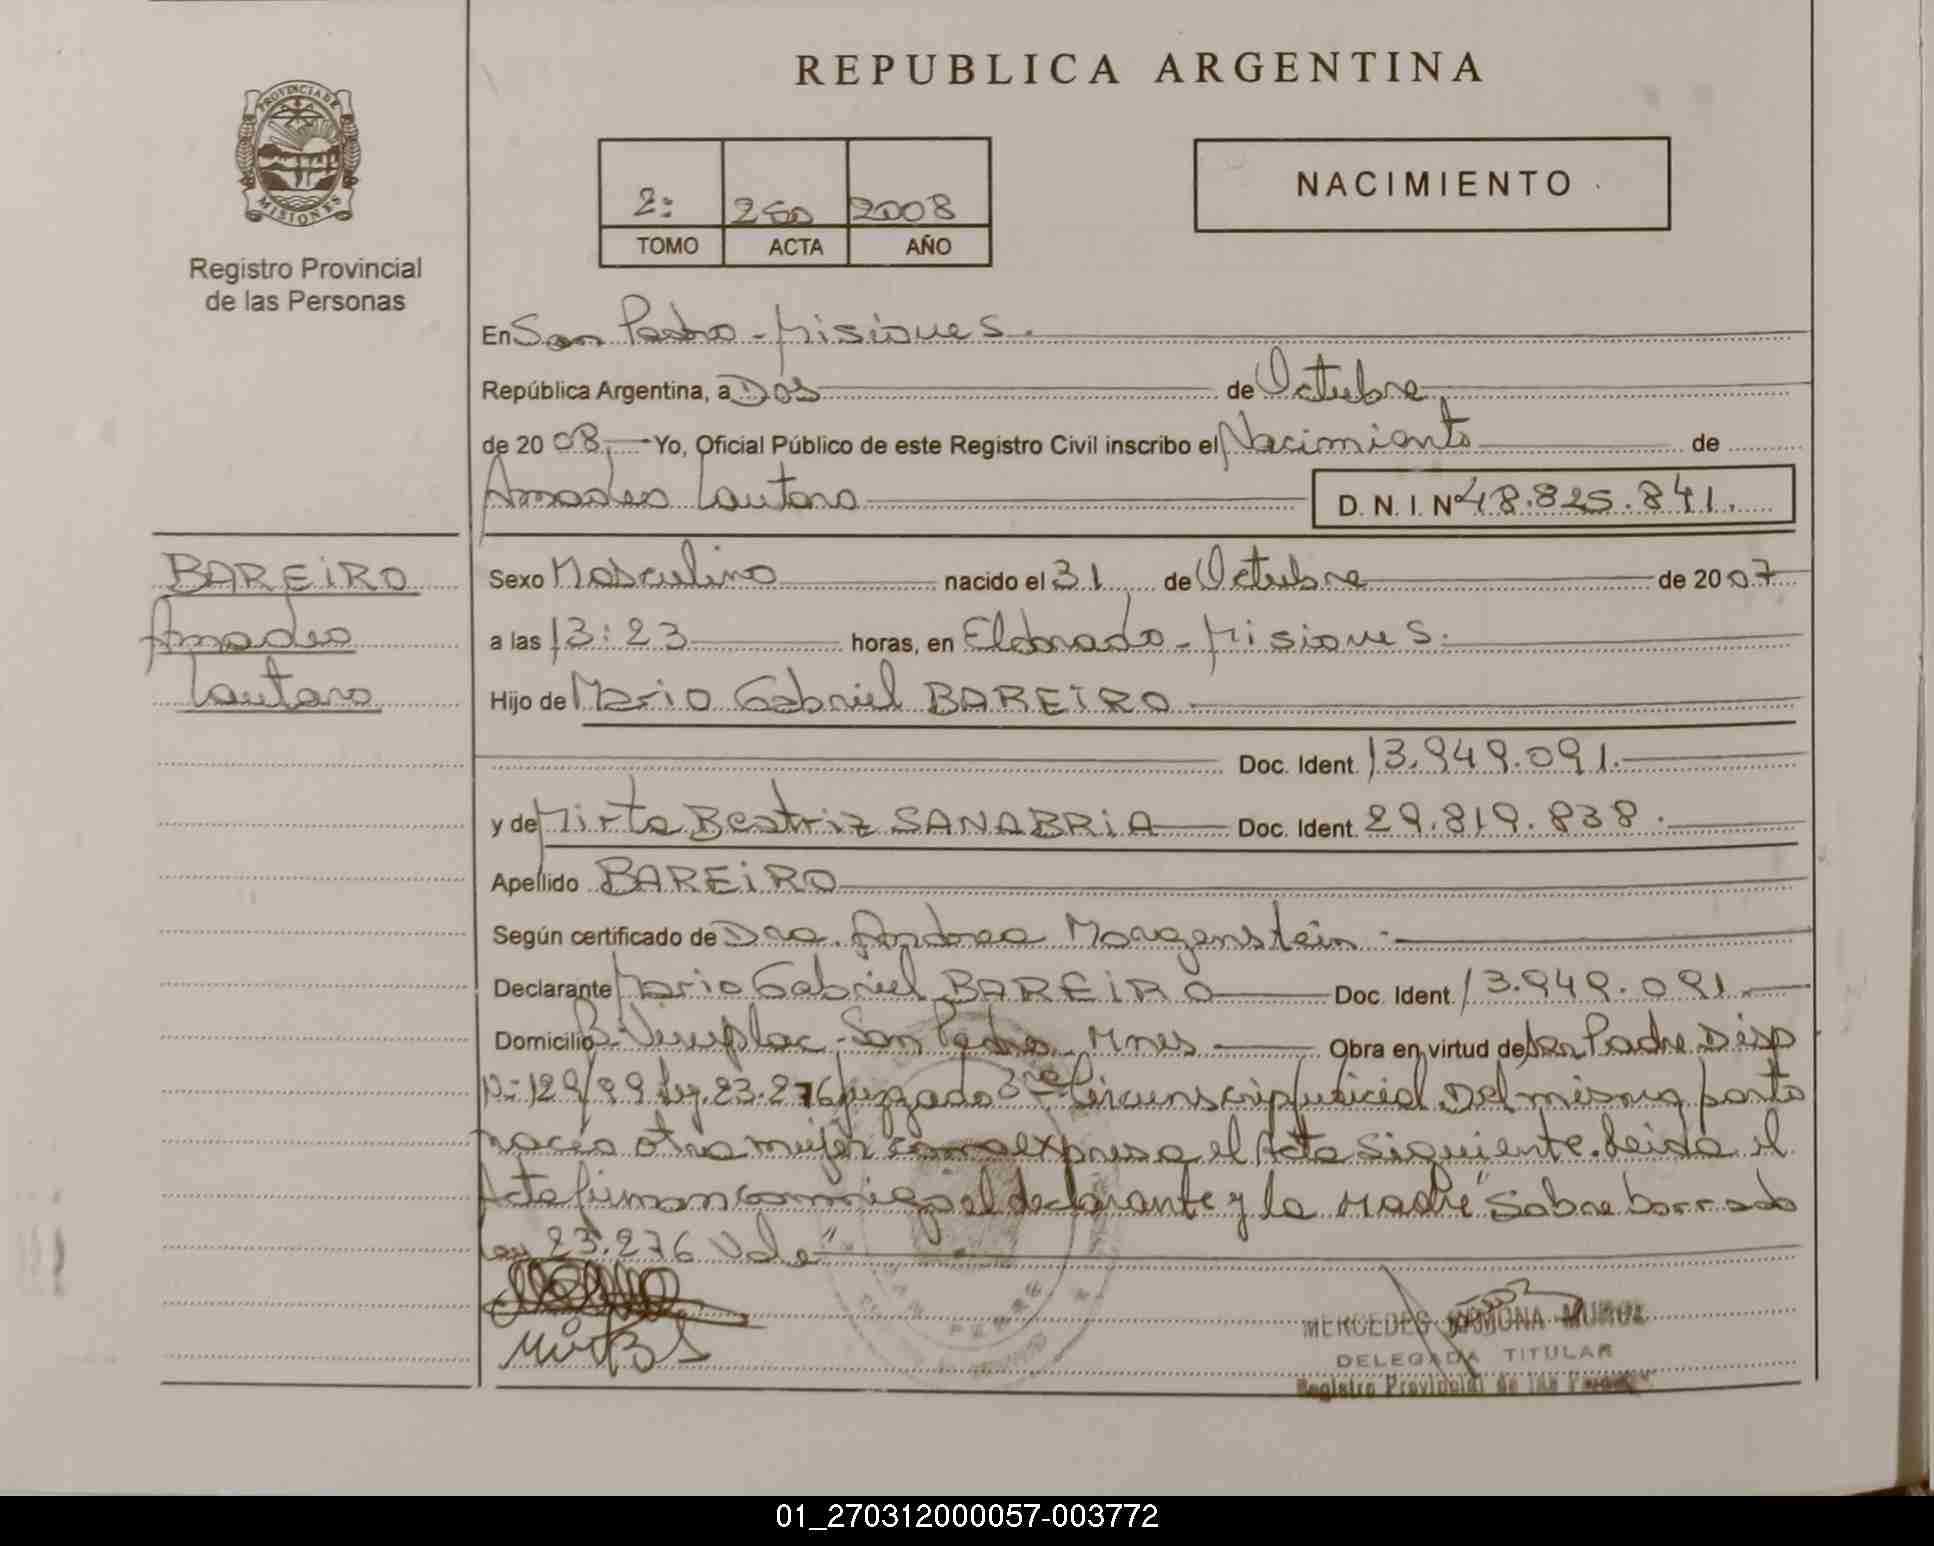 REPUBLICA ARGENTINA
PROVINCIA DE
MISIONES
Registro Provincial
de las Personas
2: 250 2008
TOMO ACTA AÑO
NACIMIENTO
En San Pedro - Misiones.
República Argentina, a Dos de Octubre
de 2008, Yo, Oficial Público de este Registro Civil inscribo el Nacimiento de
Amadeo Lautaro
D. N. I. Nº 48.825.841.
BAREIRO
Amadeo
Lautaro
Sexo Masculino nacido el 31 de Octubre de 2007
a las 13:23 horas, en Eldorado - Misiones.
Hijo de Mario Gabriel BAREIRO
Doc. Ident. 13.949.091.
y de Mirta Beatriz SANABRIA Doc. Ident. 29.819.838.
Apellido BAREIRO
Según certificado de Dra. Andrea Morgenstein.
Declarante Mario Gabriel BAREIRO Doc. Ident. 13.949.091.
Domicilio Bº San Pedro Mnes Obra en virtud de Ser Padre Disp
Nº 129/99 Ley 23.276 Juzgado 3ra Circunscrip Judicial Del mismo parto
nacio otra mujer como expresa el Acta Siguiente. Leida el
Acta firman conmigo el declarante y la Madre "Sobre borrado
Ley 23.276 Vale"
MERCEDES RAMONA MUÑOZ
DELEGADA TITULAR
Registro Provincial de las Personas
01_270312000057-003772